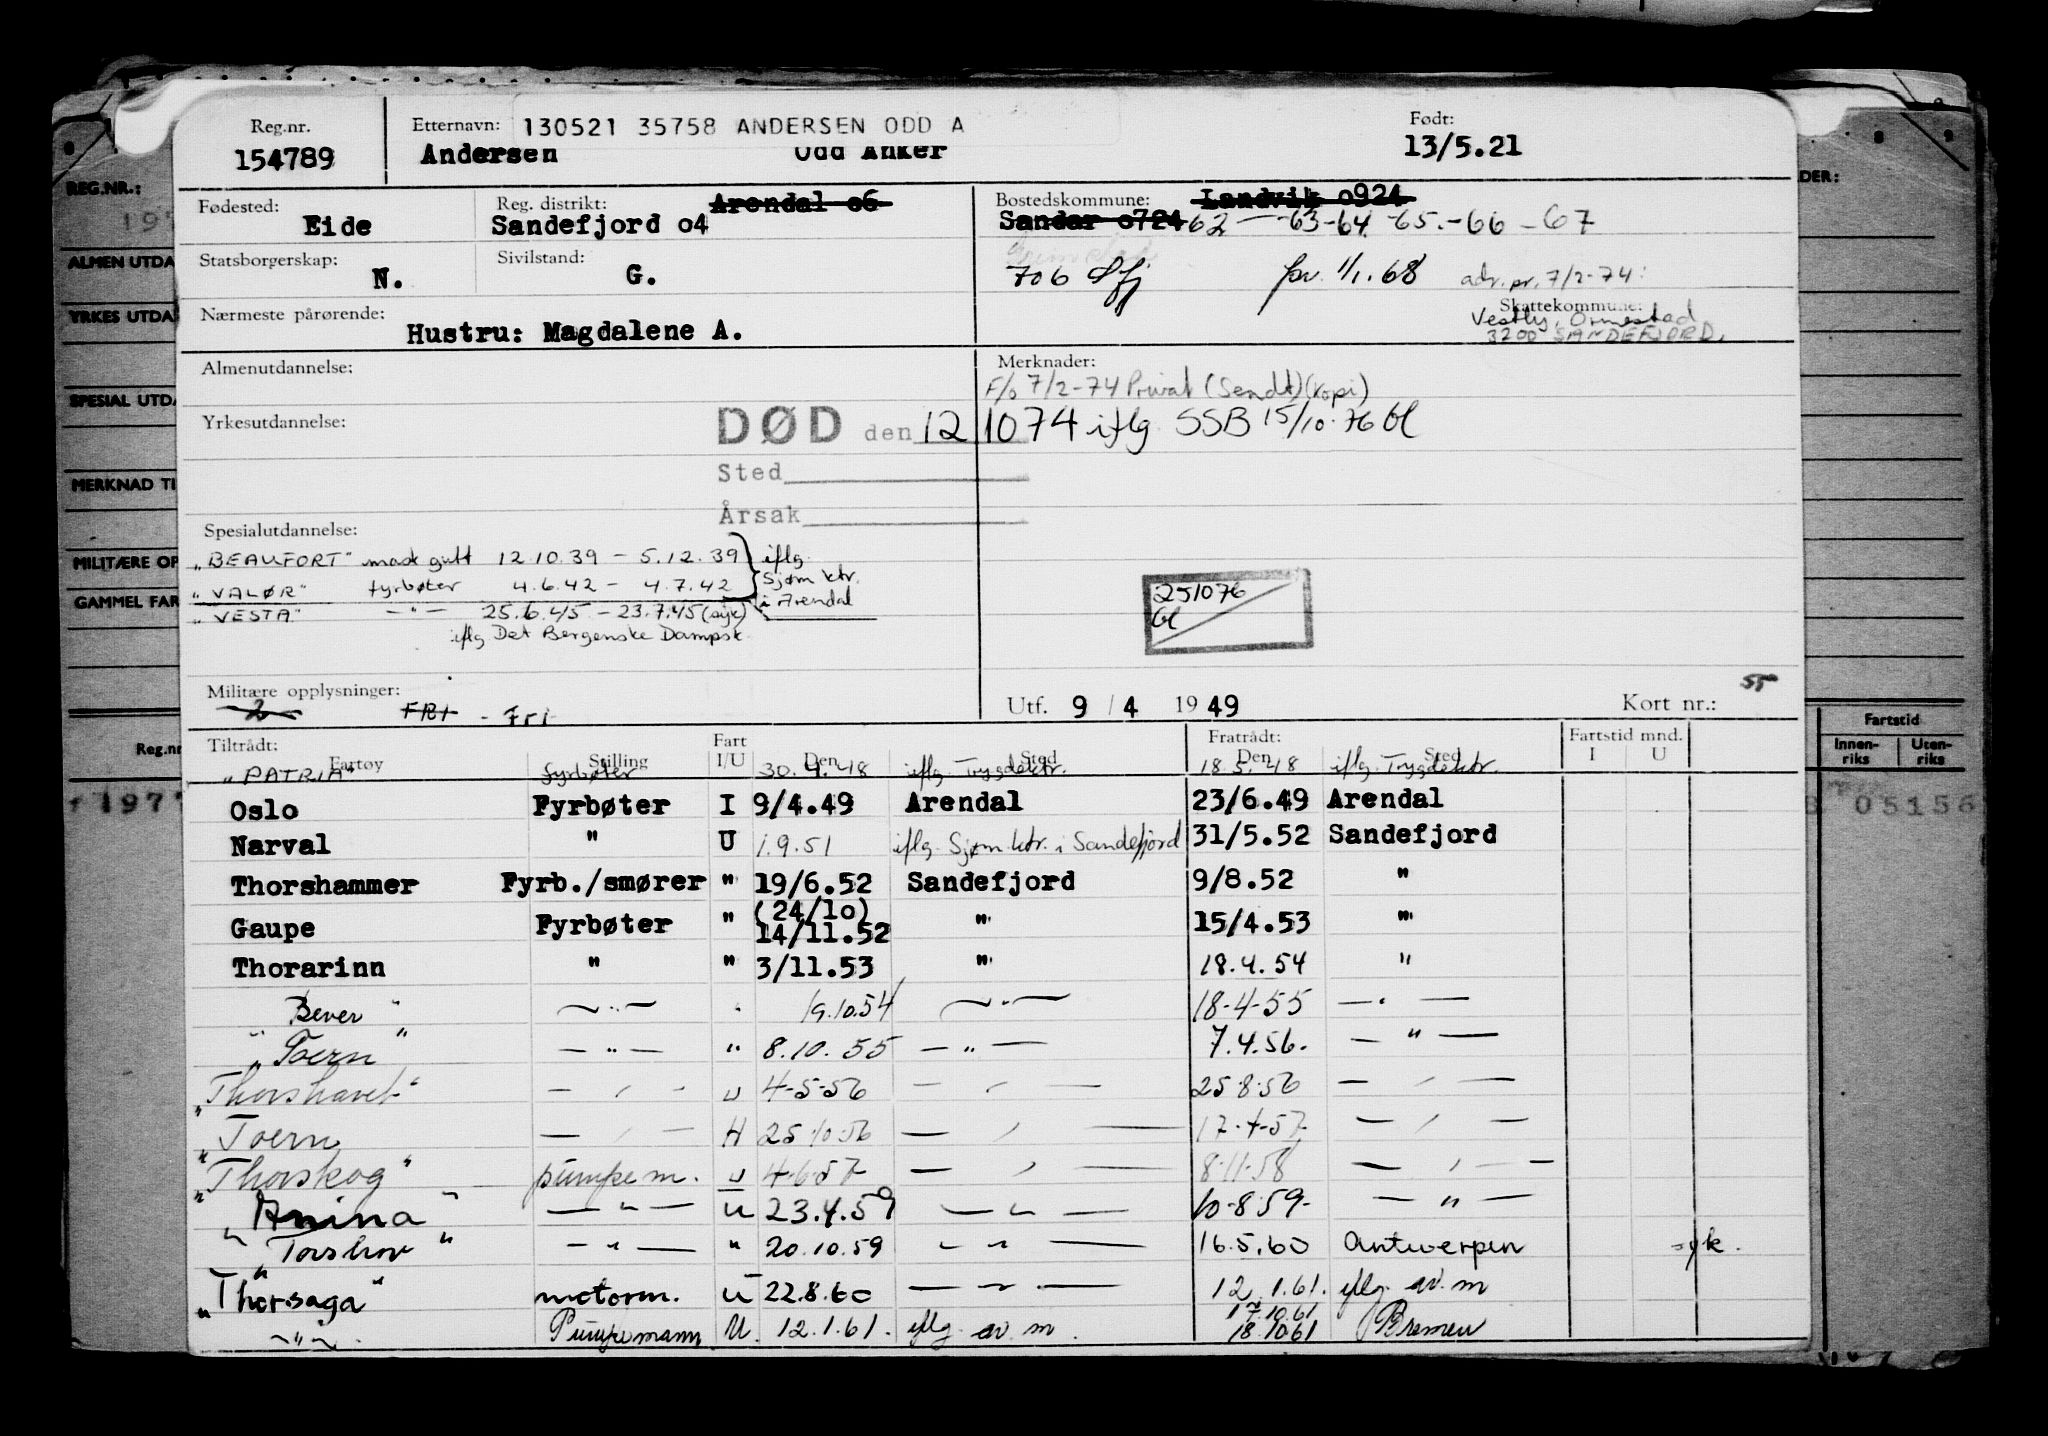 Reg.nr. Etternavn: 130521 35758 ANDERSEN ODD A Født:
154789 Andersen Odd Anker 13/5.21
REG.NR.: DER:
Fødested: Reg. distrikt: Arendal o6 Bostedskommune: Landvik o924
Eide Sandefjord o4 Sandar o724 62 — -63-64. -65.-66 -67
ALMEN UTDA
Statsborgerskap: Sivilstand:
N. G. 706 Sfj pr. 1/1.68 adr. pr. 7/2-74:
YRKES UTDA
Nærmeste pårørende: Skattekommune:
Hustru: Magdalene A. Vestly, Ormestad
3200 SANDEFJORD.
Almenutdannelse: Merknader:
F/o 7/2-74 Privat (Sendt)(kopi)
SPESIAL UTDA
Yrkesutdannelse: DØD den 12 1074 iflg. SSB 15/10-76 Gl
Sted
MERKNAD TI
Årsak
Spesialutdannelse:
MILITÆRE OP
"BEAUFORT" mask gutt 12.10.39 - 5.12.39 iflg.
"VALØR" fyrbøter 4.6.42 - 4.7.42 Sjøm ktr.
GAMMEL FAR
"VESTA" — " — 25.6.45 - 23.7.45 (syk) i Arendal
iflg Det Bergenske Dampsk.
251076
Gl
Militære opplysninger: 55
FRI - Fri Utf. 9 / 4 19 49 Kort nr.:
Tiltrådt: Fart Fratrådt: Fartstid mnd. Fartstid
Fartøy Stilling I/U Den Sted Den Sted I U Innen-riks Uten-riks
Reg.nr
"PATRIA" fyrbøter 30.4.48 iflg Trygdektr. 18.5.48 iflg. Trygdektr.
Oslo Fyrbøter I 9/4.49 Arendal 23/6.49 Arendal
05156
Narval " U 1.9.51 iflg. Sjøm.ktr. i Sandefjord 31/5.52 Sandefjord
Thorshammer Fyrb./smører " 19/6.52 Sandefjord 9/8.52 "
Gaupe Fyrbøter " (24/10) 14/11.52 " 15/4.53 "
Thorarinn " " 3/11.53 " 18.4.54 "
Bever " — " — " 19.10.54 — " — 18-4-55 — " —
"Toern" — " — " 8.10.55 — " — 7.4.56. — " —
"Thorshavet" — " — U 4-5-56 — " — 25 8-56 — " —
"Toern — " — H 25 10 56 — " — 17-4-57 — " —
"Thorskog" pumpem. U 4-6-57 — " — 8-11-58 — " —
"Anina" — " — U 23.4.59 — " — 10-8-59- — " —
"Torshov" — " — " 20.10.59 — " — 16.5.60 Antwerpen syk.
"Thorsaga" motorm. U 22.8.60 — " — 12.1.61. iflg. av. m
— " — Pumpemann U. 12.1.61. iflg. av m. 17.10.61 18.10.61 Bremen